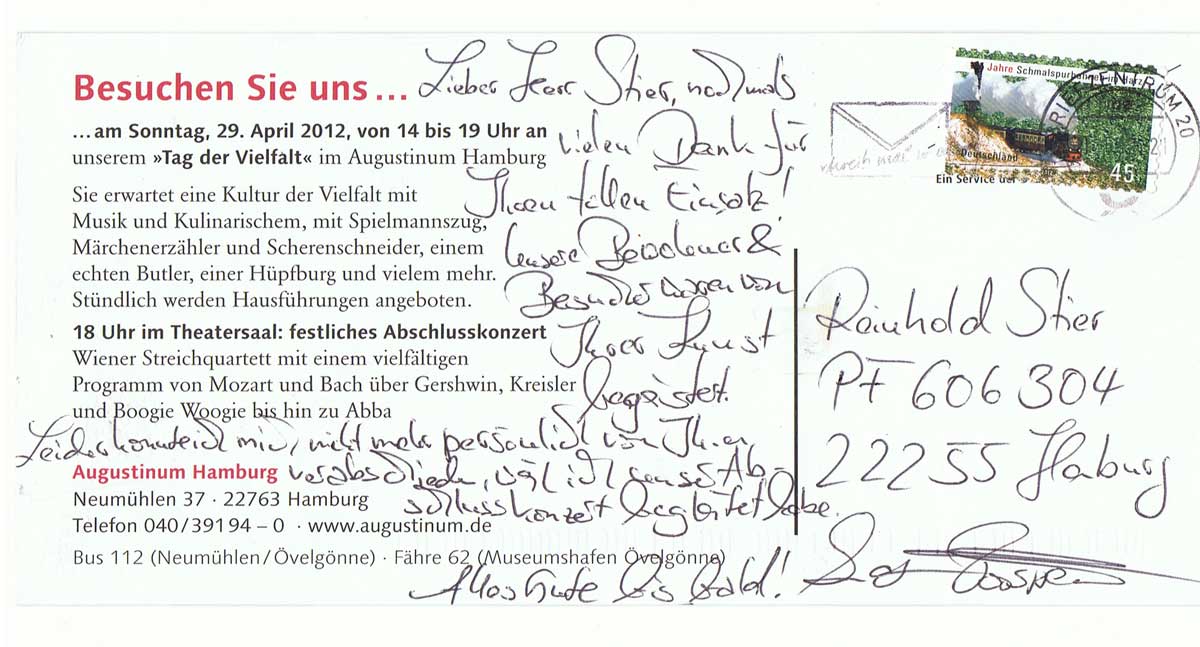 Besuchen Sie uns ...
... am Sonntag, 29. April 2012, von 14 bis 19 Uhr an
unserem »Tag der Vielfalt« im Augustinum Hamburg
Sie erwartet eine Kultur der Vielfalt mit
Musik und Kulinarischem, mit Spielmannszug,
Märchenerzähler und Scherenschneider, einem
echten Butler, einer Hüpfburg und vielem mehr.
Stündlich werden Hausführungen angeboten.
18 Uhr im Theatersaal: festliches Abschlusskonzert
Wiener Streichquartett mit einem vielfältigen
Programm von Mozart und Bach über Gershwin, Kreisler
und Boogie Woogie bis hin zu Abba
Augustinum Hamburg
Neumühlen 37 · 22763 Hamburg
Telefon 040/391 94 – 0 · www.augustinum.de
Bus 112 (Neumühlen/Övelgönne) · Fähre 62 (Museumshafen Övelgönne)
Lieber Herr Stier, nochmals
vielen Dank für
Ihren tollen Einsatz!
Unsere Bewohner &
Besucher waren von
Ihrer Kunst
begeistert.
Leider konnte ich mich nicht mehr persönlich von Ihnen
verabschieden, weil ich unser Ab-
schlusskonzert begleitet habe.
Alles Gute bis bald!
Jahre Schmalspurbahnen im Harz
Deutschland
45
Ein Service der
ZENTRUM 20
Reinhold Stier
PF 606 304
22255 Hamburg